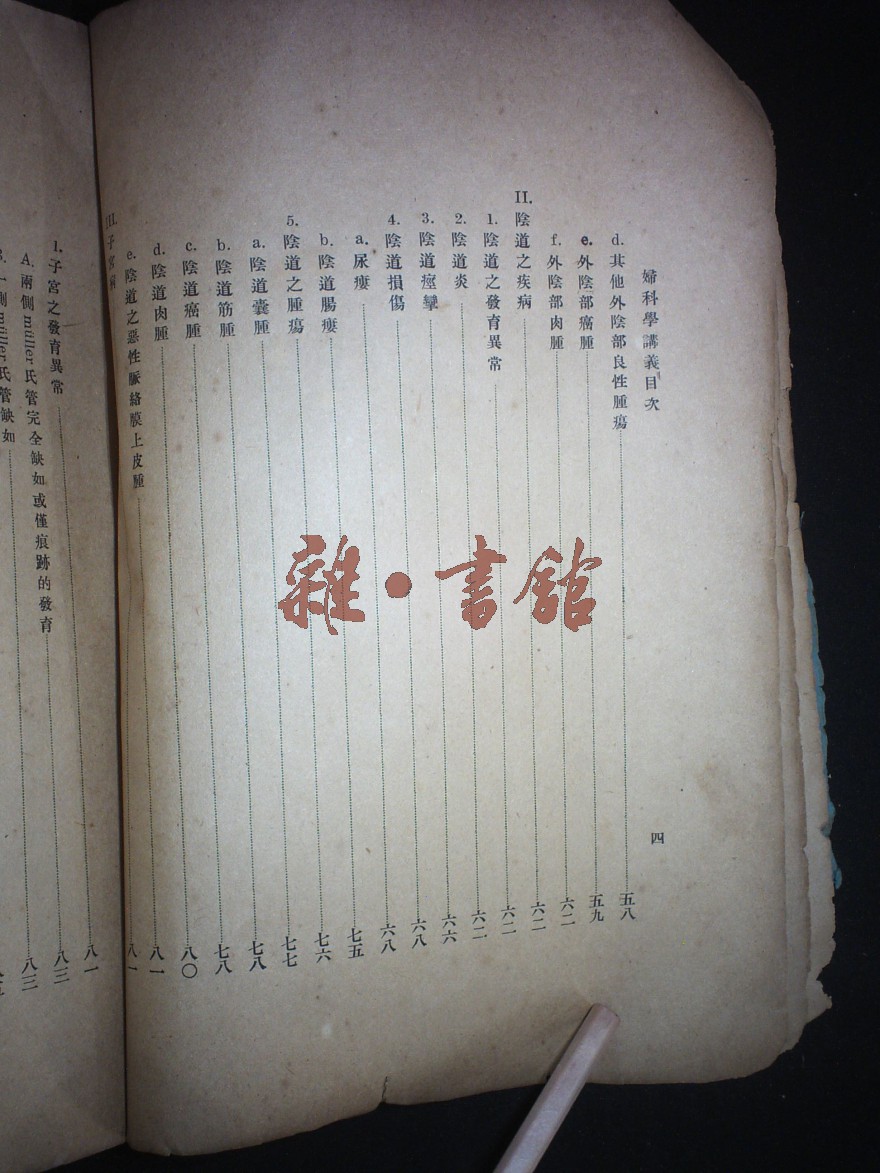 婦科學講義目次
四
d. 其他外陰部良性腫瘍 五八
e. 外陰部癌腫 五九
f. 外陰部肉腫 六二
II. 陰道之疾病 六二
1. 陰道之發育異常 六二
2. 陰道炎 六二
3. 陰道痙攣 六六
4. 陰道損傷 六八
a. 尿瘻 六八
b. 陰道腸瘻 七五
5. 陰道之腫瘍 七六
a. 陰道囊腫 七七
b. 陰道筋腫 七八
c. 陰道癌腫 七八
d. 陰道肉腫 八〇
e. 陰道之惡性脈絡膜上皮腫 八一
III. 子宮病 八一
1. 子宮之發育異常 八一
A. 兩側müller氏管完全缺如或僅痕跡的發育 八三
一側müller氏管缺如 八三
雜·書館